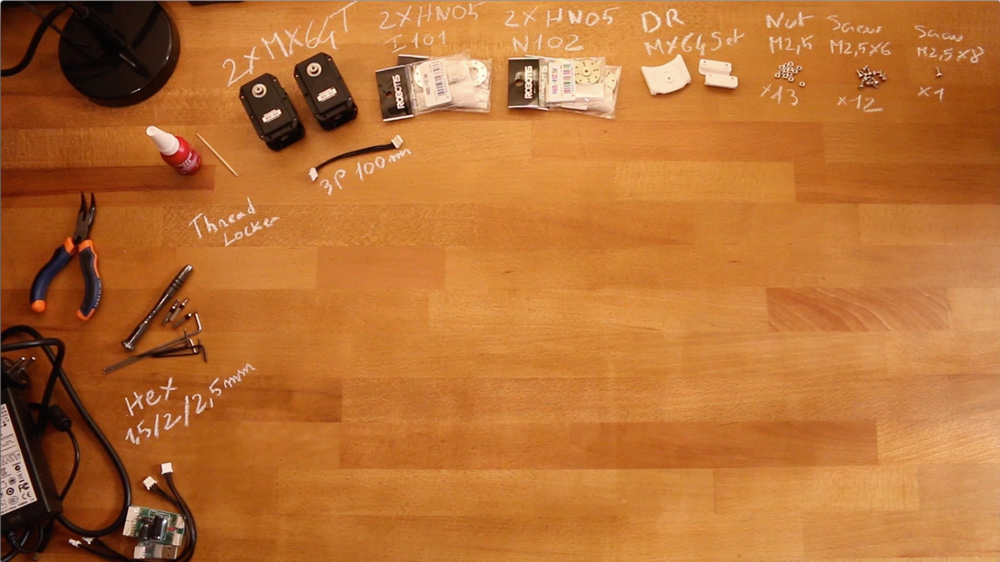 2XMX64T
2XHN05
I101
2XHN05
N102
DR
MX64 Set
Nut
M2,5
x13
Screw
M2,5x6
x12
Screw
M2,5x8
x1
ROBOTIS
ROBOTIS
3P 100mm
Thread
Locker
Hex
1,5/2/2,5mm